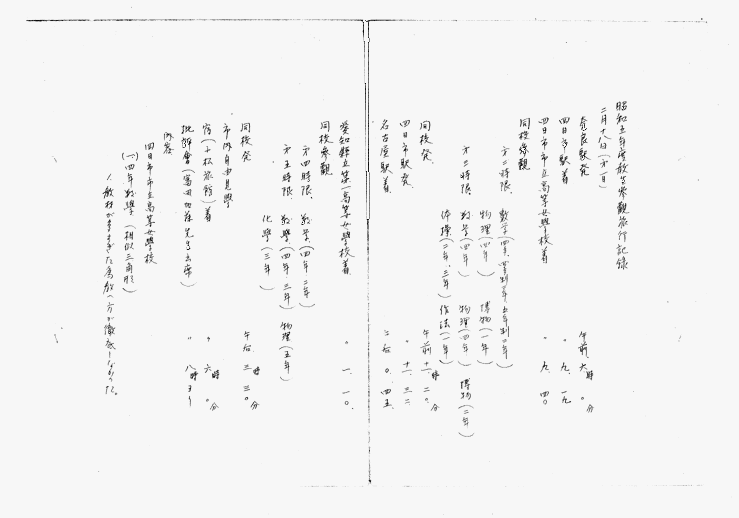 昭和五年度教生参観旅行記録
二月十八日(才一日)
奈良駅発 午前 六時 〇分
四日市駅着 〃 九、一九
四日市市立高等女学校着 〃 九、四〇
同校参観
才二時限、数学(四年、
物理(四年) 博物(一年)
才三時限、数学(四年) 物理(四年) 博物(二年)
体操(二年、三年) 作法(一年)
同校発 午前 十一時 二〇分
四日市駅発 〃 十一、三二
名古屋駅着 〇、四五
愛知縣立第一高等女學校着 〃 一、一〇
同校参観
才四時限、数学(四年二年)
才五時限 数學(四年 三年) 物理(五年)
化學(三年)
同校発 午后 三時 三〇分
市内自由見學
宿(千松旅館)着 〃 六時 〇分
批評會( 先生出席) 〃 八時ヨリ
内容
四日市市立高等女學校
(一)四年数學(相似三角形)
1.教材がすぎた為教へ方が徹底しなかった。